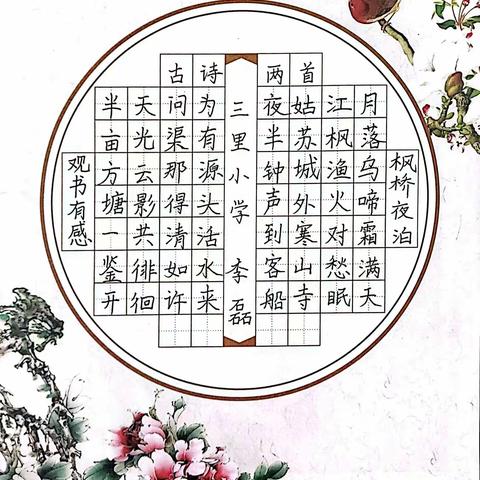 古诗两首
枫桥夜泊
月落乌啼霜满天
江枫渔火对愁眠
姑苏城外寒山寺
夜半钟声到客船
三里小学 李磊
观书有感
半亩方塘一鉴开
天光云影共徘徊
问渠那得清如许
为有源头活水来